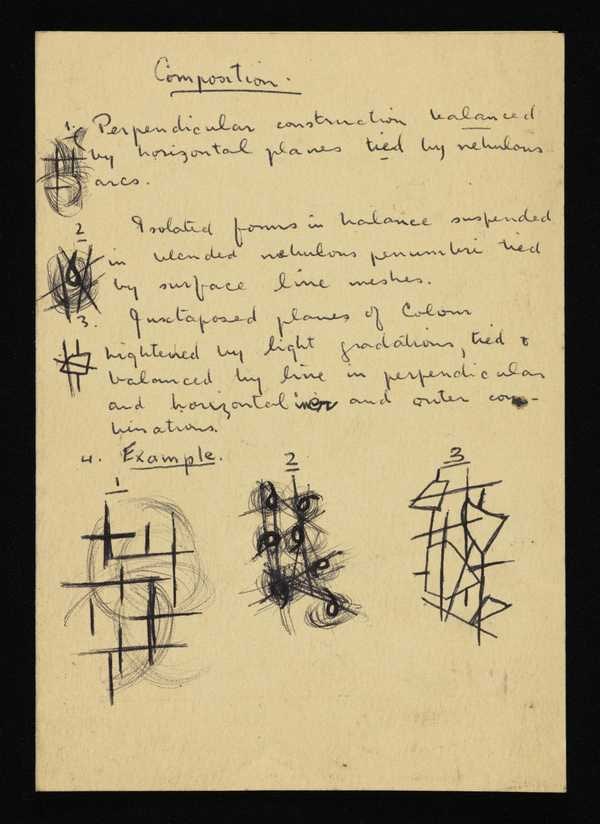 Composition.
1. Perpendicular construction balanced
by horizontal planes tied by nebulous
arcs.
2
Isolated forms in balance suspended
in blended nebulous penumbri tied
by surface line meshes.
3. Juxtaposed planes of Colour
hightened by light gradations, tied &
balanced by line in perpendicular
and horizontal inner and outer com-
binations.
4. Example.
1 2 3